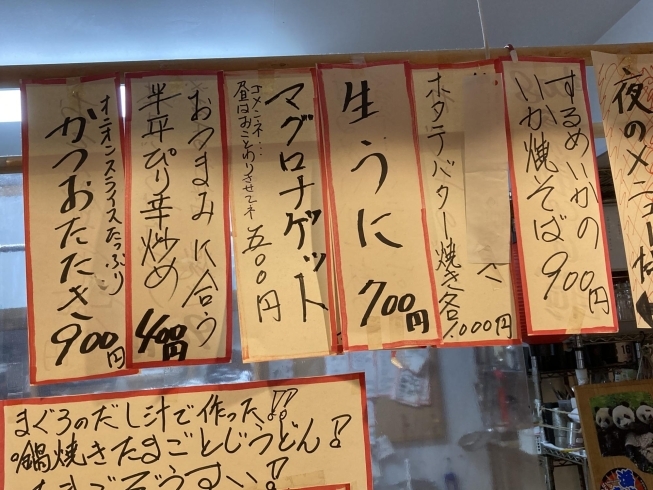 夜のメニューは
するめいかの
いか焼そば 900円
ホタテバター焼き各1,000円
生うに 700円
マグロナゲット
ゴメンネ…
昼はおことわりさせてネ
五〇〇円
おつまみに合う
半平ぴり辛炒め
400円
オニオンスライスたっぷり
かつおたたき 900円
まぐろのだし汁で作った!!
鍋焼きたまごとじうどん!
たまごぞうすい!